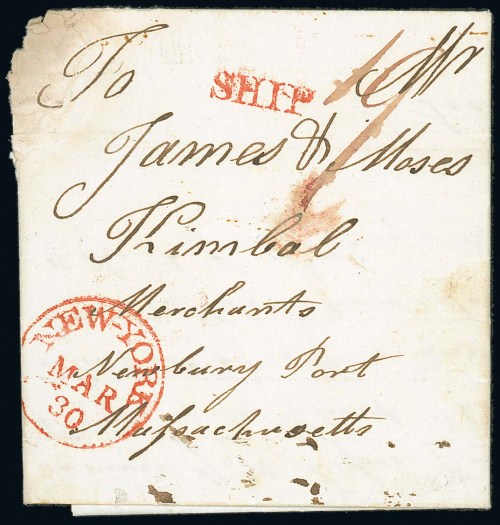 To Mr
SHIP
James & Moses
Kimbal
Merchants
Newbury Port
Massachusetts
NEW-YORK
MAR
30